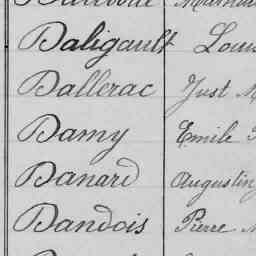 Daligault Louis
Dallerac Just
Damy Emile
Danard Augustin
Dandois Pierre